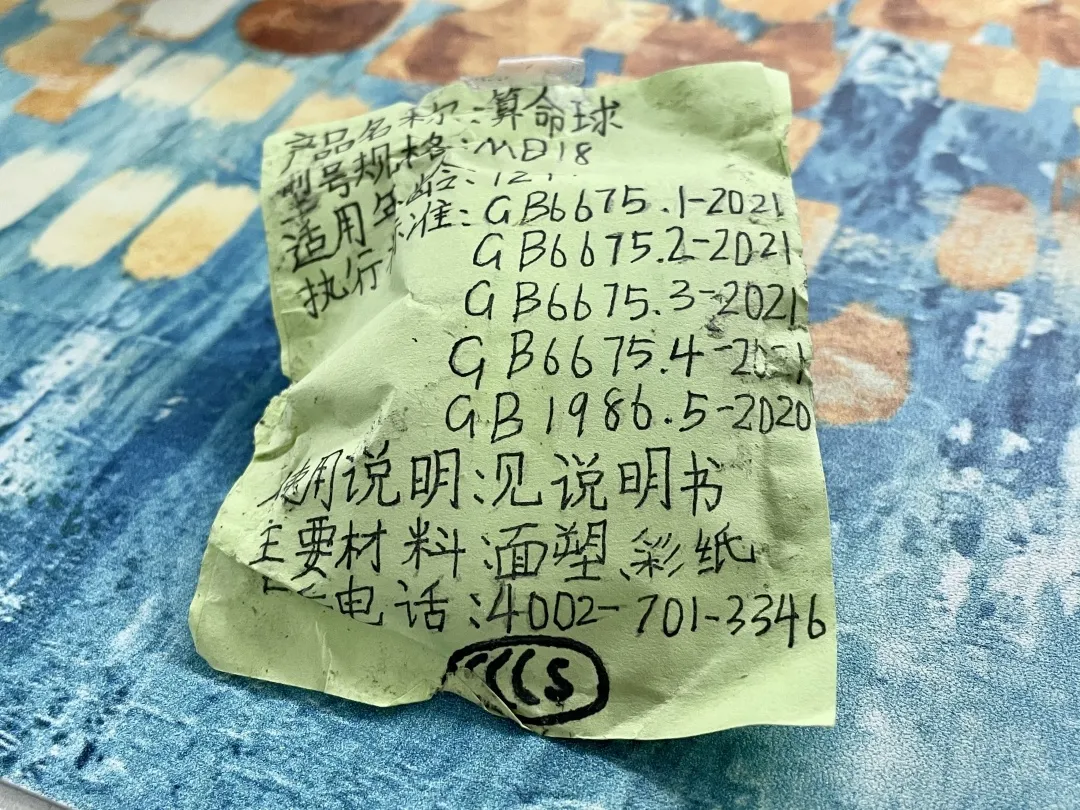 产品名称:算命球
型号规格:MD18
适用年龄:12
执行标准:GB6675.1-2021
GB6675.2-2021
GB6675.3-2021
GB6675.4-2021
GB1986.5-2020
使用说明:见说明书
主要材料:面塑、彩纸
电话:4002-701-3346
CCCS